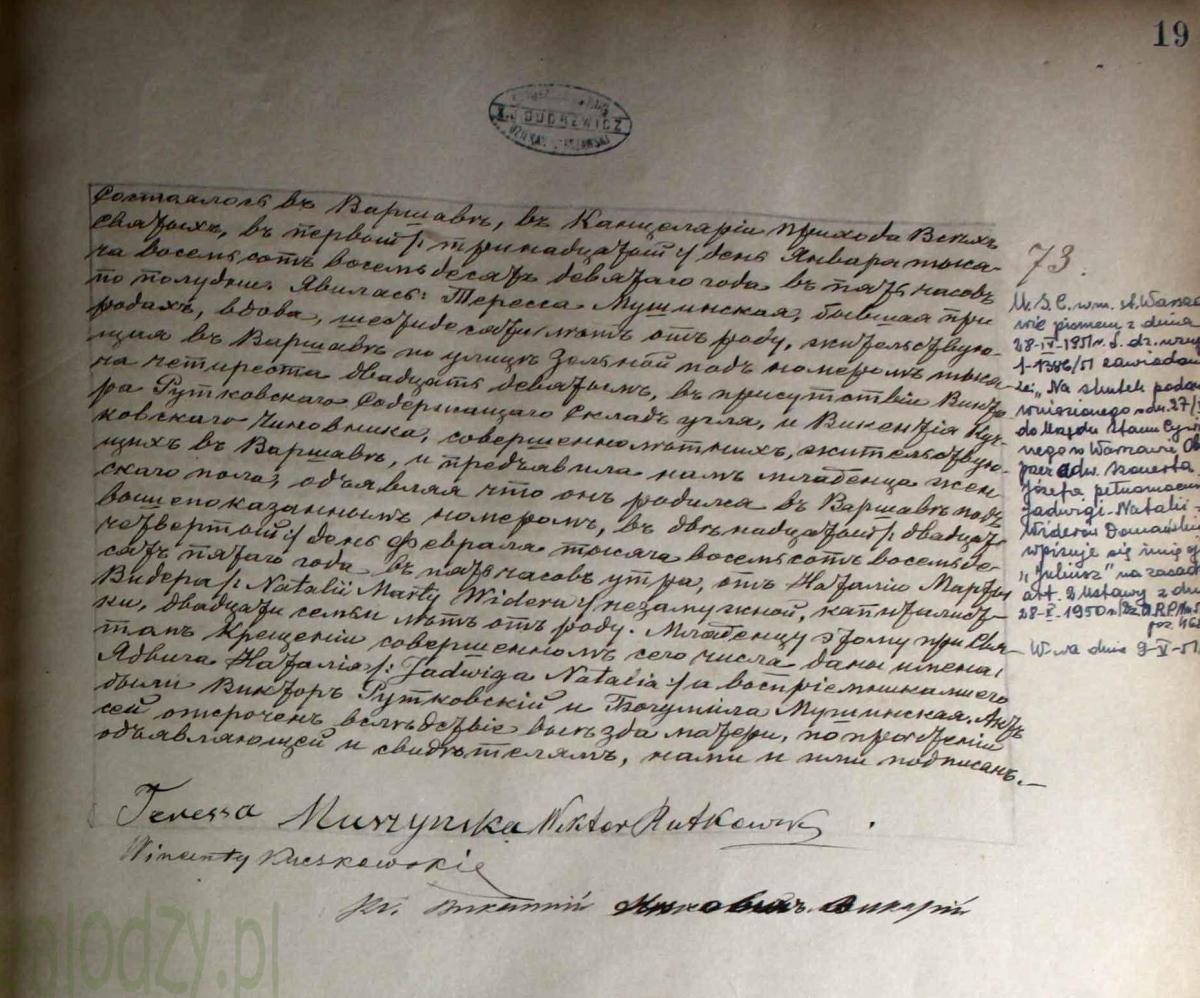 19
DUDREWICZ
Состоялось въ Варшавѣ, въ Канцеляріи прихода Всѣхъ
Святыхъ, въ первый /: тринадцатый :/ день Января тыся-
ча восемьсотъ восемьдесятъ девятаго года въ пять часовъ
по полудни. Явилась: Тересса Мушинская, бывшая при
родахъ, вдова, шестидесяти лѣтъ отъ роду, жительствую-
щая въ Варшавѣ по улицѣ Зельной подъ номеромъ тыся
ча четыреста двадцать девятымъ, въ присутствіи Викто
ра Рутковскаго Содержащаго Складъ угля, и Викентія Куч
ковскаго Чиновника, совершеннолѣтнихъ, жительствую-
щихъ въ Варшавѣ, и предъявила намъ младенца жен
скаго пола, объявляя что онъ родился въ Варшавѣ подъ
вышепоказаннымъ номеромъ, въ двѣнадцатый /: двадцать
четвертый :/ день Февраля тысяча восемьсотъ восемьде-
сятъ пятаго года въ пять часовъ утра, отъ Наталіи Марты
Видера /: Natalii Marty Widera :/ незамужной, капиталист-
ки, двадцати семьи лѣтъ отъ роду. Младенцу этому при Свя-
томъ Крещеніи совершенномъ сего числа даны имена:
Ядвига Наталія /: Jadwiga Natalia :/ а воспріемниками его
были Викторъ Рутковскій и Богумила Мушинская. Актъ
сей отсроченъ вслѣдствіе выѣзда матери, по прочтеніи
объявляющей и свидѣтелямъ, нами и ими подписанъ.—
73.
U. S. C. w m. st. Warsza
wie pismem z dnia
28-IV-1951 r. L. dz. 
1-1386/51 zawiadam
ia: "Na skutek podan
wniesionego w dn. 27/
do Urzędu Stanu Cywil
nego w Warszawie
przez adw. 
Józefa pełnomocn
Jadwigi-Natalii
Widerów Domański
wpisuje się imię oj
"Juliusz" na zasadz
art. 2 Ustawy z dni
28-X-1950 r. Dz. U. R.P. Nr
poz. 
W-wa dnia 9-V-51
Teressa Muszynska Wiktor Rutkowski
Wincenty Kuczkowski
Кс. Викентій Викарій
zlodzy.pl